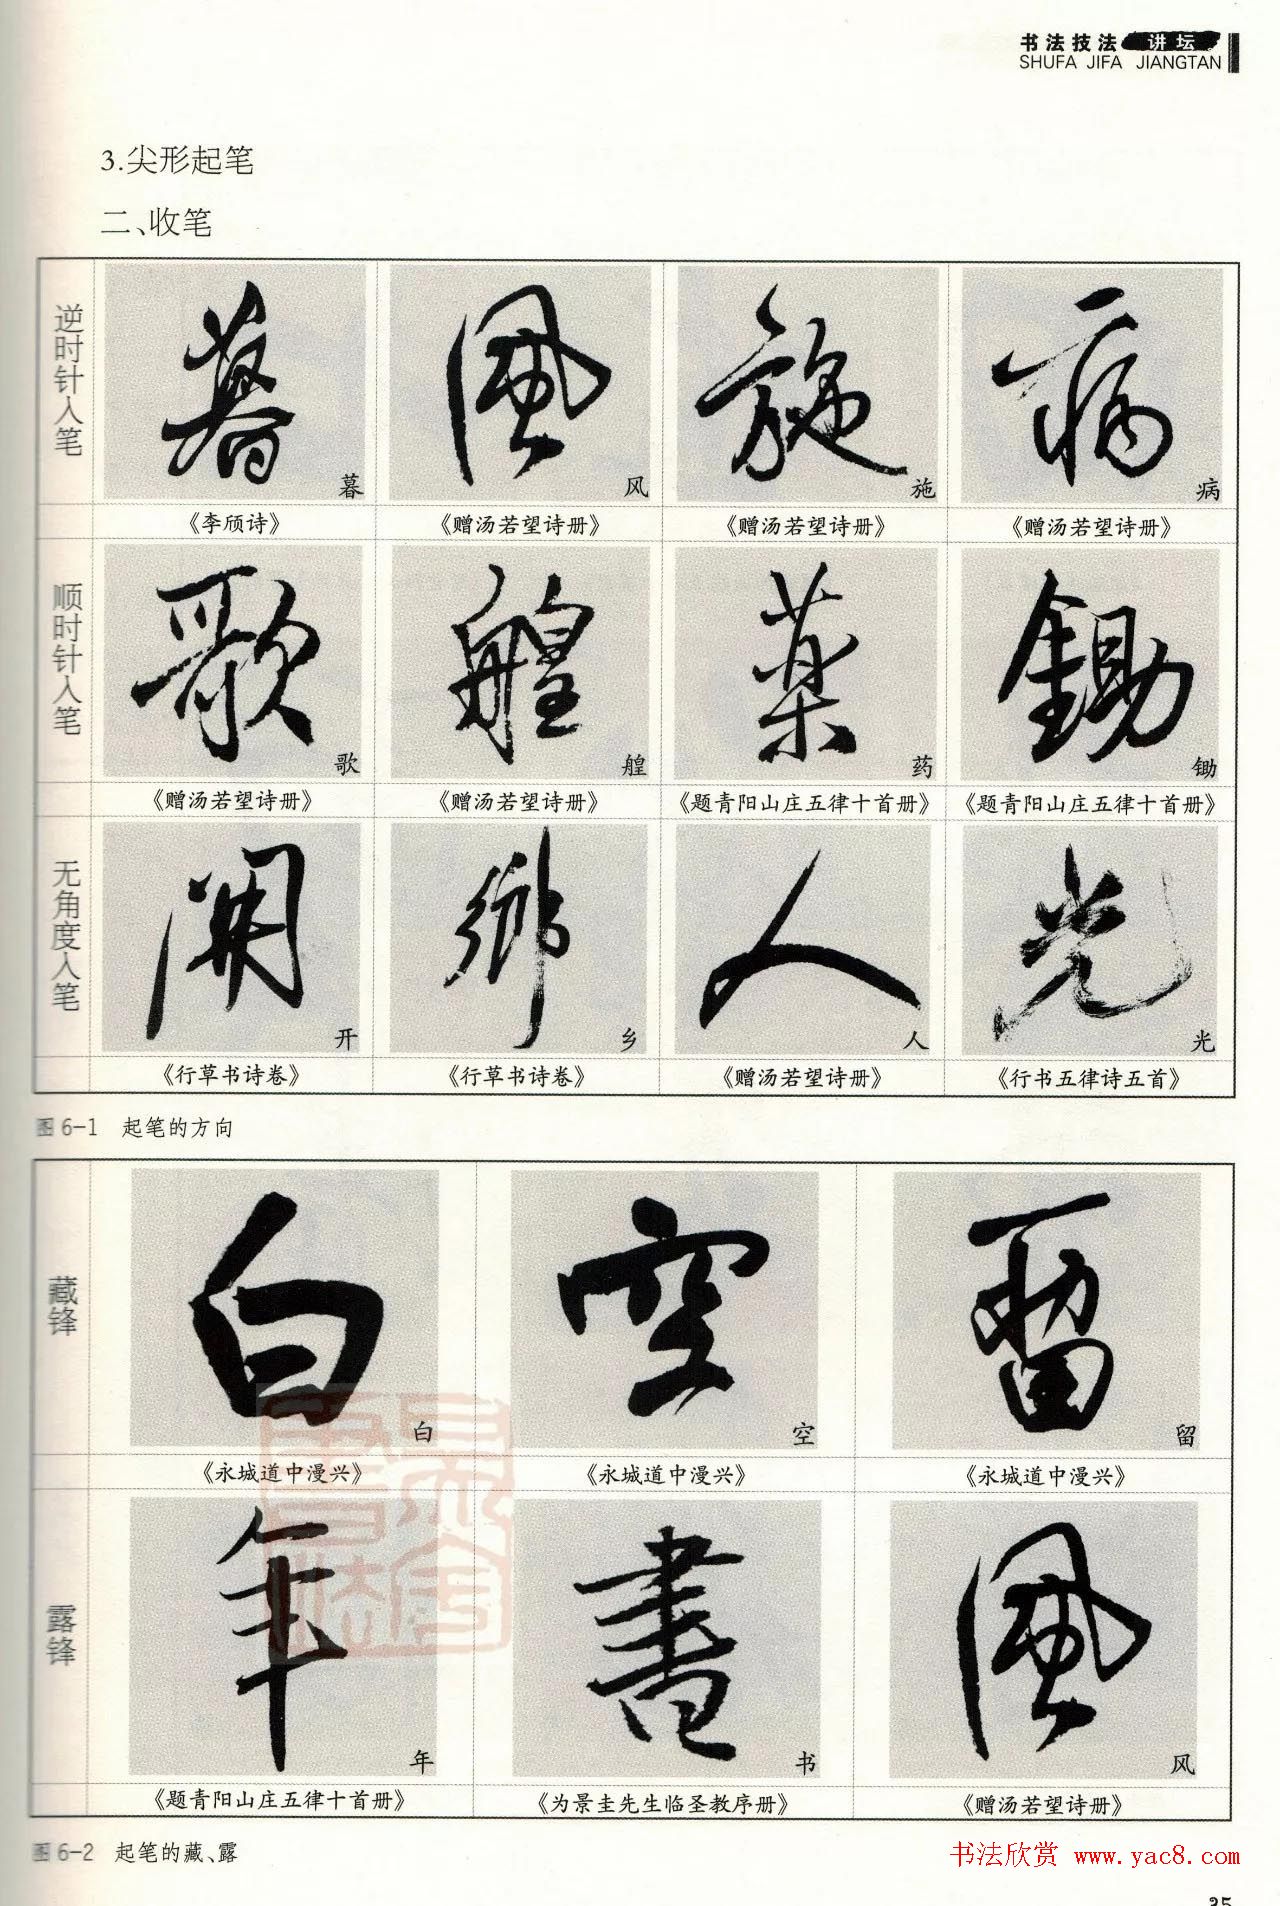 书法技法 讲坛
SHUFA JIFA JIANGTAN
3.尖形起笔
二、收笔
逆时针入笔
暮 风 施 病
《李颀诗》 《赠汤若望诗册》 《赠汤若望诗册》 《赠汤若望诗册》
顺时针入笔
歌 艎 药 锄
《赠汤若望诗册》 《赠汤若望诗册》 《题青阳山庄五律十首册》 《题青阳山庄五律十首册》
无角度入笔
开 乡 人 光
《行草书诗卷》 《行草书诗卷》 《赠汤若望诗册》 《行书五律诗五首》
图6-1 起笔的方向
藏锋
白 空 留
《永城道中漫兴》 《永城道中漫兴》 《永城道中漫兴》
露锋
年 书 风
《题青阳山庄五律十首册》 《为景圭先生临圣教序册》 《赠汤若望诗册》
图6-2 起笔的藏、露
书法欣赏 www.yac8.com
35